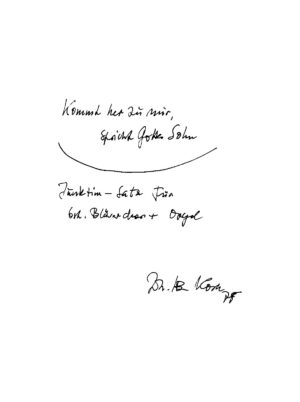 Kommt her zu mir,
spricht Gottes Sohn
Junktim – Satz für
6st. Bläserchor + Orgel